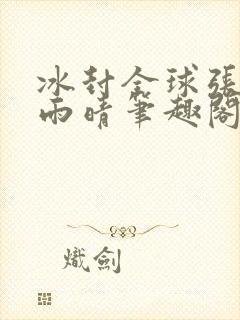 冰封全球張
雨晴筆趣閣
熾劍